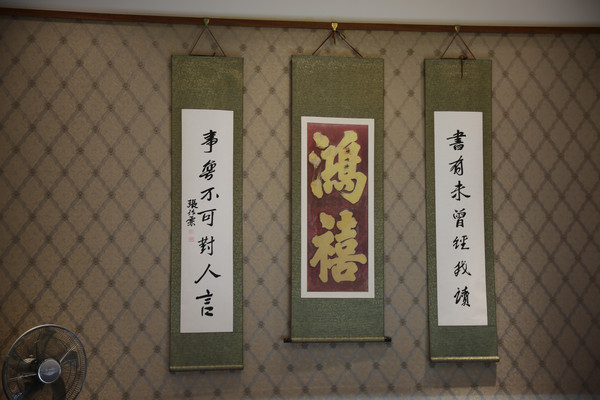 書有未曾經我讀
鴻禧
事無不可對人言